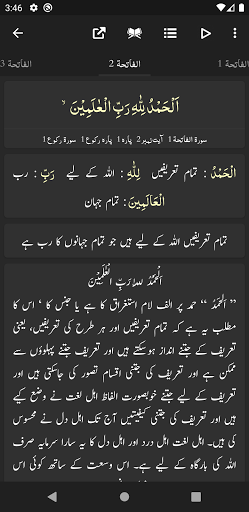 3:46
الفاتحة 1
الفاتحة 2
الفاتحة 3
اَلْحَمْدُ لِلّٰهِ رَبِّ الْعٰلَمِيْنَ ۙ
سورۃ الفاتحۃ 1 آیت نمبر 2 پارہ 1 پارہ رکوع 1 سورۃ رکوع 1
الْحَمْدُ : تمام تعریفیں لِلّٰهِ : اللہ کے لیے رَبِّ : رب
الْعَالَمِينَ : تمام جہان
تمام تعریفیں اللہ کے لیے ہیں جو تمام جہانوں کا رب ہے
اَلْحَمْدُ لِلّٰهِ رَبِّ الْعٰلَمِیْنَ
” اَلْحَمْدُ “ حمد پر الف لام استغراق کا ہے یا جنس کا ‘ اس کا
مطلب یہ ہے کہ تمام تعریفیں اور ہر طرح کی تعریفیں، یعنی
تعریف کے جتنے انداز ہوسکتے ہیں اور تعریف جتنے پہلوؤں سے
ممکن ہے اور تعریف کی جتنی اقسام تصور کی جاسکتی ہیں اور
تعریف کے لیے جتنے خوبصورت الفاظ اہل لغت نے وضع کیے
ہیں اور تعریف کی جتنی کیفیتیں آج تک اہل دل نے محسوس
کی ہیں۔ اہل لغت اہل درد اور اہل دل کا یہ سارا سرمایہ صرف
اللہ کی بارگاہ کے لیے ہے۔ اس وسعت کے ساتھ کوئی اس